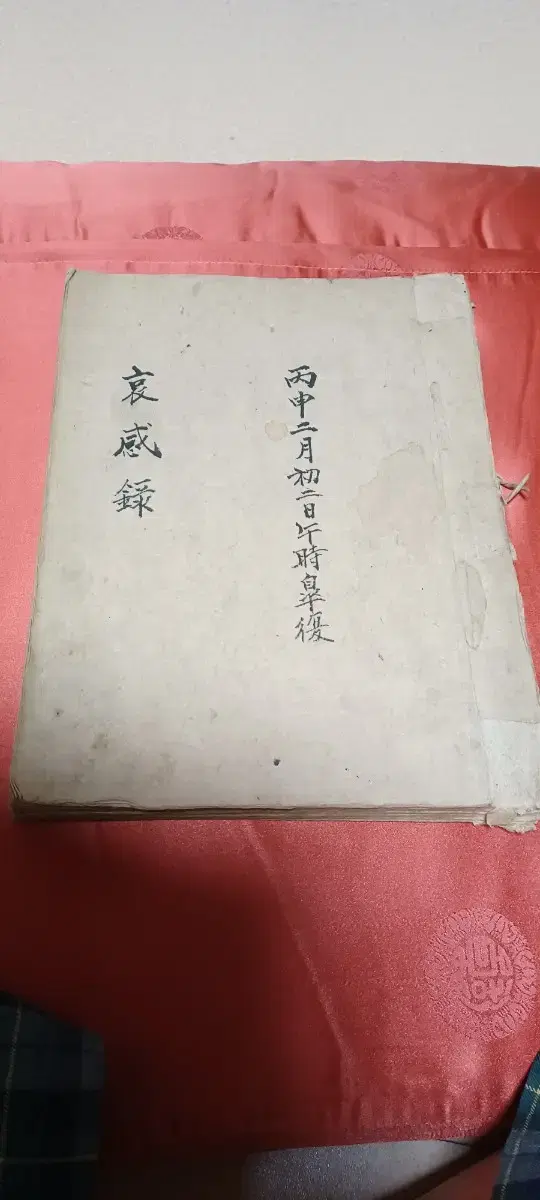 丙申二月初二日午時皐復
哀感錄